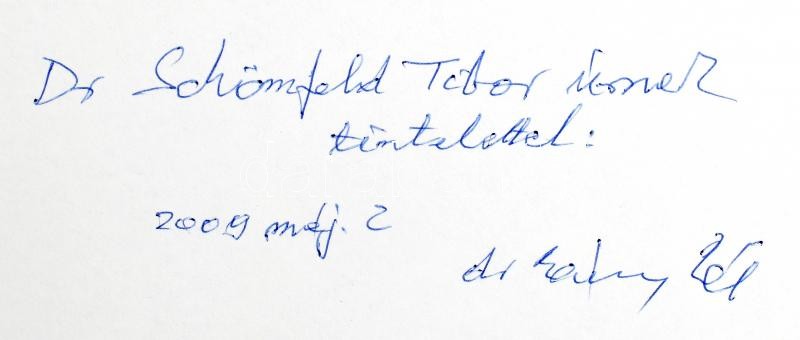 Dr Schönfeld Tibor úrnak
tisztelettel:
2009 máj. 2
dr